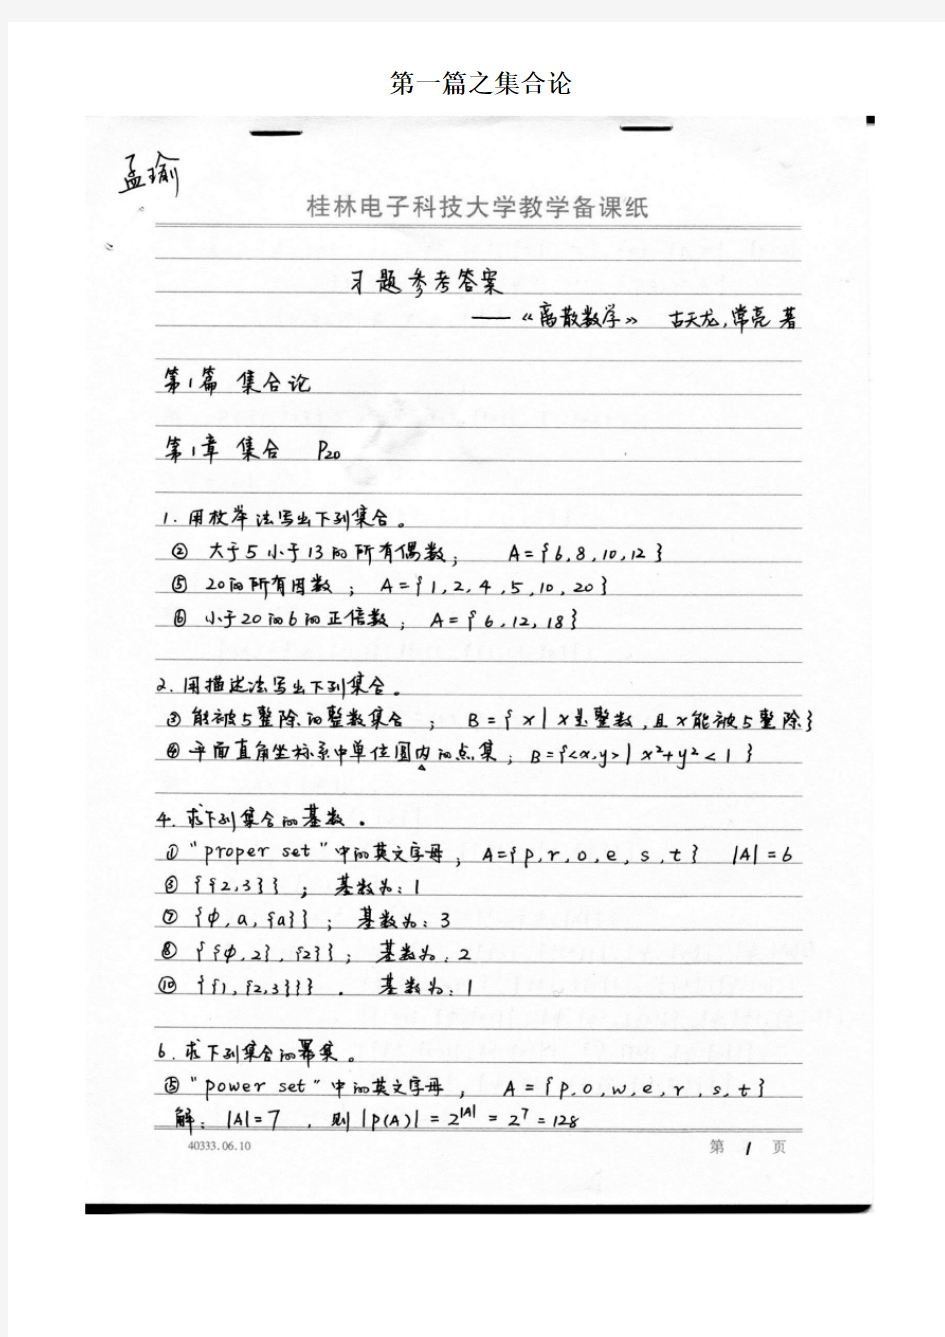 第一篇之集合论
孟瑜
桂林电子科技大学教学备课纸
习题参考答案
——《离散数学》 古天龙,常亮 著
第1篇 集合论
第1章 集合 P20
1. 用枚举法写出下列集合。
② 大于5小于13的所有偶数; A={6,8,10,12}
⑤ 20的所有因数; A={1,2,4,5,10,20}
⑥ 小于20的6的正倍数; A={6,12,18}
2. 用描述法写出下列集合。
③ 能被5整除的整数集合; B={x|x是整数,且x能被5整除}
④ 平面直角坐标系中单位圆内的点集; B={<x,y>|x²+y²<1}
4. 求下列集合的基数。
① "proper set"中的英文字母; A={p,r,o,e,s,t} |A|=6
③ {{2,3}}; 基数为:1
⑦ {φ,a,{a}}; 基数为:3
⑧ {{φ,2},{2}}; 基数为:2
⑩ {{1,{2,3}}}. 基数为:1
6. 求下列集合的幂集。
⑤ "power set"中的英文字母, A={p,o,w,e,r,s,t}
解: |A|=7, 则|P(A)|=2^|A|=2⁷=128
40333.06.10 第 1 页